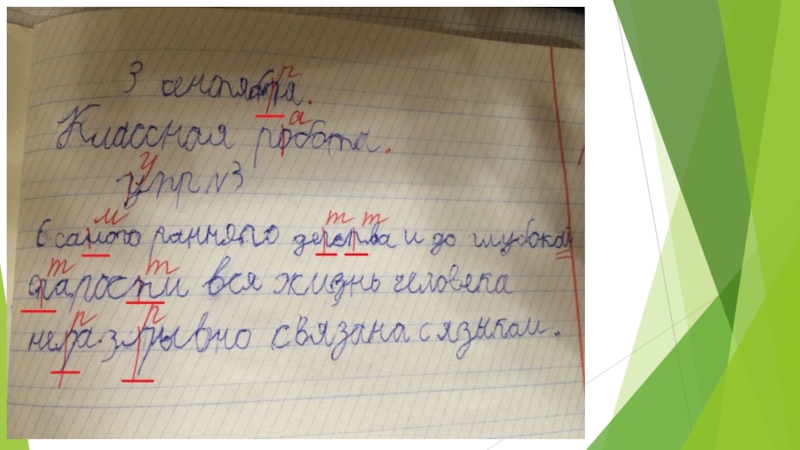 3 сентября.
Классная работа.
упр. №3
С самого раннего детства и до глубокой
старости вся жизнь человека
неразрывно связана с языком.